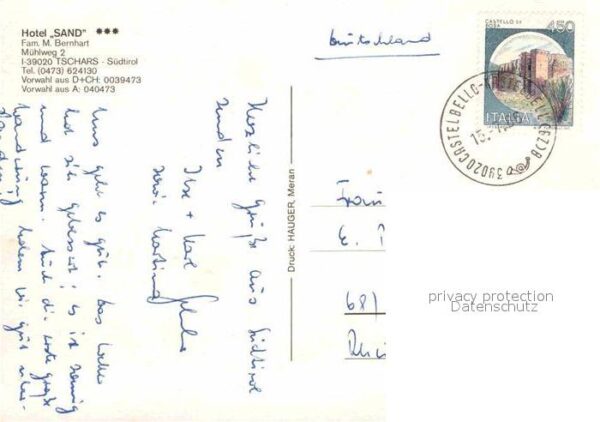 Hotel „SAND" ***
Fam. M. Bernhart
Mühlweg 2
I-39020 TSCHARS - Südtirol
Tel. (0473) 624130
Vorwahl aus D+CH: 0039473
Vorwahl aus A: 040473
Deutschland
CASTELLO DI
ROSA
450
ITALIA
39020 CASTELBELLO-
(BZ) B
15.
Herzliche Grüße aus Südtirol
senden
Ilse + Karl
Uns geht es gut. Das Wetter
hat sich gebessert; es ist sonnig
und warm. Auch die erste große
Wanderung haben wir gut
Druck: HAUGER, Meran
Frau
E.
681
privacy protection
Datenschutz